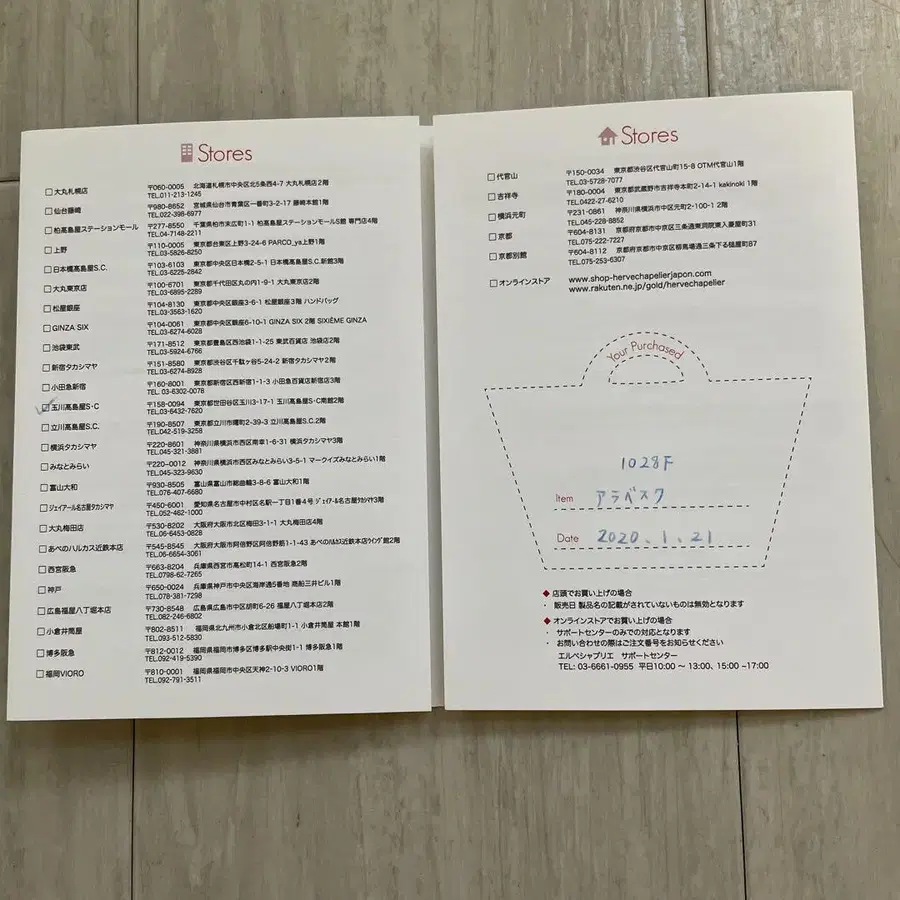 Stores
大丸札幌店 〒060-0005 北海道札幌市中央区北5条西4-7 大丸札幌店2階
TEL.011-213-1245
仙台藤崎 〒980-8652 宮城県仙台市青葉区一番町3-2-17 藤崎本館1階
TEL.022-398-6977
柏髙島屋ステーションモール 〒277-8550 千葉県柏市末広町1-1 柏髙島屋ステーションモールS館 専門店4階
TEL.04-7148-2211
上野 〒110-0005 東京都台東区上野3-24-6 PARCO_ya上野1階
TEL.03-5826-8250
日本橋髙島屋S.C. 〒103-6103 東京都中央区日本橋2-5-1 日本橋髙島屋S.C.新館3階
TEL.03-6225-2842
大丸東京店 〒100-6701 東京都千代田区丸の内1-9-1 大丸東京店2階
TEL.03-6895-2289
松屋銀座 〒104-8130 東京都中央区銀座3-6-1 松屋銀座3階 ハンドバッグ
TEL.03-3563-1620
GINZA SIX 〒104-0061 東京都中央区銀座6-10-1 GINZA SIX 2階 SIXIÈME GINZA
TEL.03-6274-6028
池袋東武 〒171-8512 東京都豊島区西池袋1-1-25 東武百貨店 池袋店2階
TEL.03-5924-6766
新宿タカシマヤ 〒151-8580 東京都渋谷区千駄ヶ谷5-24-2 新宿タカシマヤ2階
TEL.03-6274-8928
小田急新宿 〒160-8001 東京都新宿区西新宿1-1-3 小田急百貨店新宿店3階
TEL. 03-6302-0078
玉川髙島屋S・C 〒158-0094 東京都世田谷区玉川3-17-1 玉川髙島屋S・C南館2階
TEL.03-6432-7620
立川髙島屋S.C. 〒190-8507 東京都立川市曙町2-39-3 立川髙島屋S.C.2階
TEL.042-519-3258
横浜タカシマヤ 〒220-8601 神奈川県横浜市西区南幸1-6-31 横浜タカシマヤ3階
TEL.045-321-3881
みなとみらい 〒220-0012 神奈川県横浜市西区みなとみらい3-5-1 マークイズみなとみらい1階
TEL.045-323-9630
富山大和 〒930-8505 富山県富山市総曲輪3-8-6 富山大和1階
TEL.076-407-6680
ジェイアール名古屋タカシマヤ 〒450-6001 愛知県名古屋市中村区名駅一丁目1番4号 ジェイアール名古屋タカシマヤ3階
TEL.052-462-1000
大丸梅田店 〒530-8202 大阪府大阪市北区梅田3-1-1 大丸梅田店4階
TEL.06-6453-0828
あべのハルカス近鉄本店 〒545-8545 大阪府大阪市阿倍野区阿倍野筋1-1-43 あべのハルカス近鉄本店ウイング館2階
TEL.06-6654-3061
西宮阪急 〒663-8204 兵庫県西宮市高松町14-1 西宮阪急2階
TEL.0798-62-7265
神戸 〒650-0024 兵庫県神戸市中央区海岸通5番地 商船三井ビル1階
TEL.078-381-7298
広島福屋八丁堀本店 〒730-8548 広島県広島市中区胡町6-26 福屋八丁堀本店2階
TEL.082-246-6802
小倉井筒屋 〒802-8511 福岡県北九州市小倉北区船場町1-1 小倉井筒屋 本館1階
TEL.093-512-5830
博多阪急 〒812-0012 福岡県福岡市博多区博多駅中央街1-1 博多阪急1階
TEL.092-419-5390
福岡VIORO 〒810-0001 福岡県福岡市中央区天神2-10-3 VIORO1階
TEL.092-791-3511
Stores
代官山 〒150-0034 東京都渋谷区代官山町15-8 OTM代官山1階
TEL.03-5728-7077
吉祥寺 〒180-0004 東京都武蔵野市吉祥寺本町2-14-1 kakinoki 1階
TEL.0422-27-6210
横浜元町 〒231-0861 神奈川県横浜市中区元町2-100-1 2階
TEL.045-228-8852
京都 〒604-8131 京都府京都市中京区三条通東洞院東入菱屋町31
TEL.075-222-7227
京都別館 〒604-8112 京都府京都市中京区柳馬場通三条下る槌屋町87
TEL.075-253-6307
オンラインストア www.shop-hervechapelierjapon.com
www.rakuten.ne.jp/gold/hervechapelier
Your Purchased
1028F
Item アラベスク
Date 2020.1.21
◆ 店頭でお買い上げの場合
・ 販売日 製品名の記載がされていないものは無効となります
◆ オンラインストアでお買い上げの場合
・ サポートセンターのみでの対応となります
・ お問い合わせの際はご注文番号をお知らせください
エルベシャプリエ サポートセンター
TEL: 03-6661-0955 平日10:00 〜 13:00、15:00 ~17:00